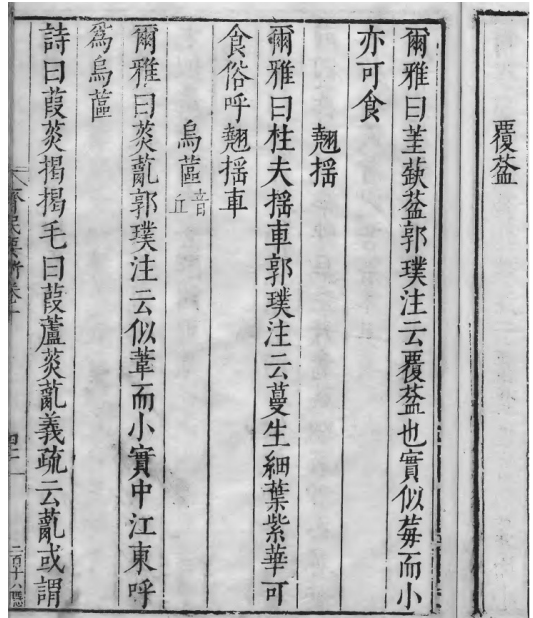 覆葐
爾雅曰茥蒛葐郭璞注云覆葐也實似莓而小
亦可食
翹揺
爾雅曰柱夫揺車郭璞注云蔓生細葉紫華可
食俗呼翹揺車
烏蓲音丘
爾雅曰菼薍郭璞注云似葦而小實中江東呼
爲烏蓲
詩曰葭菼揭揭毛曰葭蘆菼薍義疏云薍或謂
齊民要術卷十
二百十八